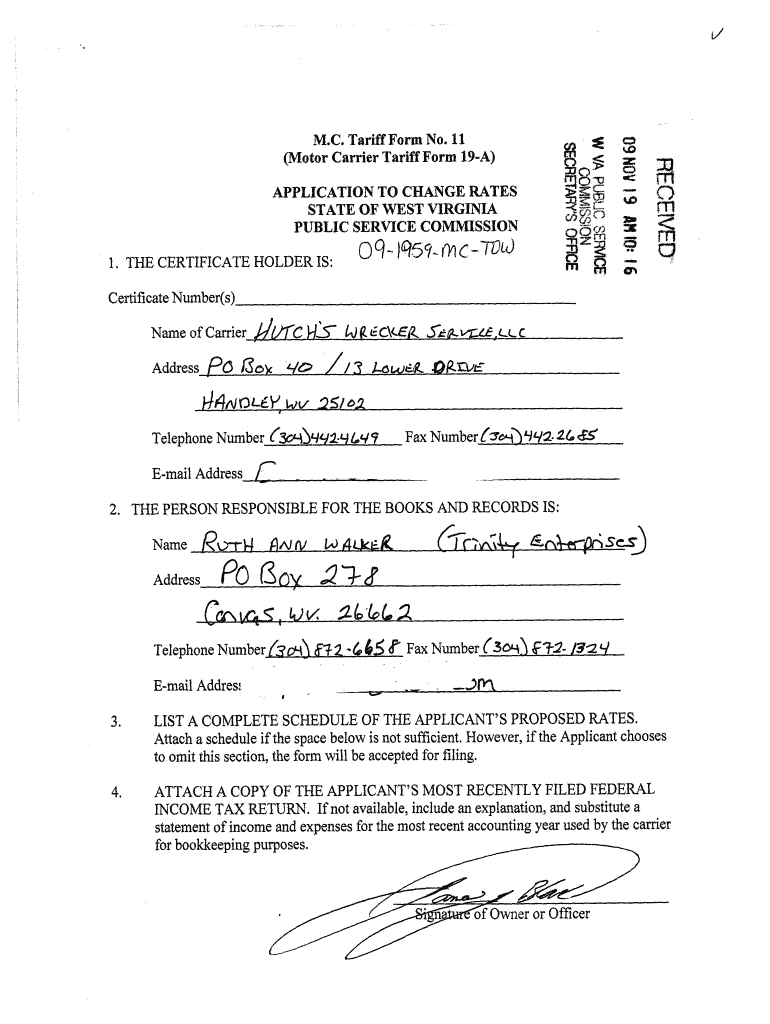 M.C. Tariff Form No. 11
(Motor Carrier Tariff Form 19-A)
APPLICATION TO CHANGE RATES
STATE OF WEST VIRGINIA
PUBLIC SERVICE COMMISSION
RECEIVED
09 NOV 19 AM 10: 16
W VA PUBLIC SERVICE
COMMISSION
SECRETARY'S OFFICE
09-1959-MC-TOW
1. THE CERTIFICATE HOLDER IS:
Certificate Number(s)
Name of Carrier HUTCH'S WRECKER SERVICE, LLC
Address PO BOX 40 / 13 LOWER DRIVE
HANDLEY, WV 25102
Telephone Number (304)442-4649 Fax Number (304)442-2685
E-mail Address
2. THE PERSON RESPONSIBLE FOR THE BOOKS AND RECORDS IS:
Name RUTH ANN WALKER (Trinity Enterprises)
Address PO Box 278
Canvas, WV. 26662
Telephone Number (304) 872-6658 Fax Number (304) 872-1324
E-mail Address om
3. LIST A COMPLETE SCHEDULE OF THE APPLICANT'S PROPOSED RATES.
Attach a schedule if the space below is not sufficient. However, if the Applicant chooses
to omit this section, the form will be accepted for filing.
4. ATTACH A COPY OF THE APPLICANT'S MOST RECENTLY FILED FEDERAL
INCOME TAX RETURN. If not available, include an explanation, and substitute a
statement of income and expenses for the most recent accounting year used by the carrier
for bookkeeping purposes.
Signature of Owner or Officer